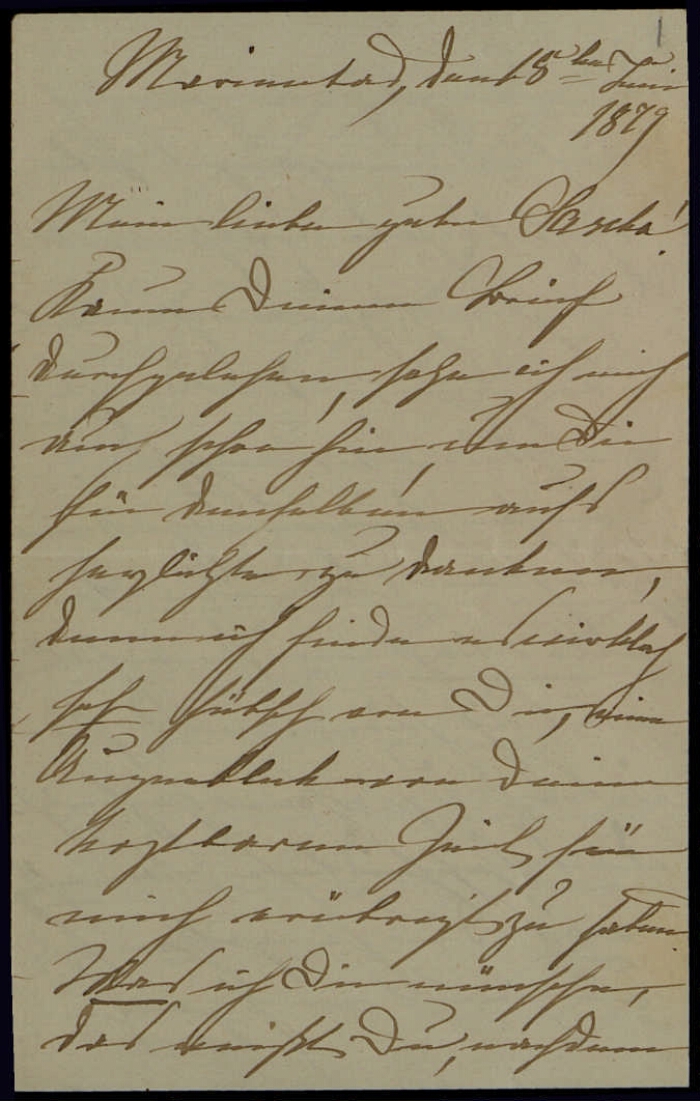 1
Marienbad, den 18ten Juni
1879
Mein lieber guter Sascha!
Kaum Deinen Brief
durchgelesen, setze ich mich
auch schon hin, um Dir
für denselben aufs
herzlichste zu danken,
denn ich finde es wirklich
sehr hübsch von Dir, einen
Augenblick von Deiner
kostbaren Zeit für
mich erübrigt zu haben
Was ich Dir wünsche,
das weißt Du, nachdem